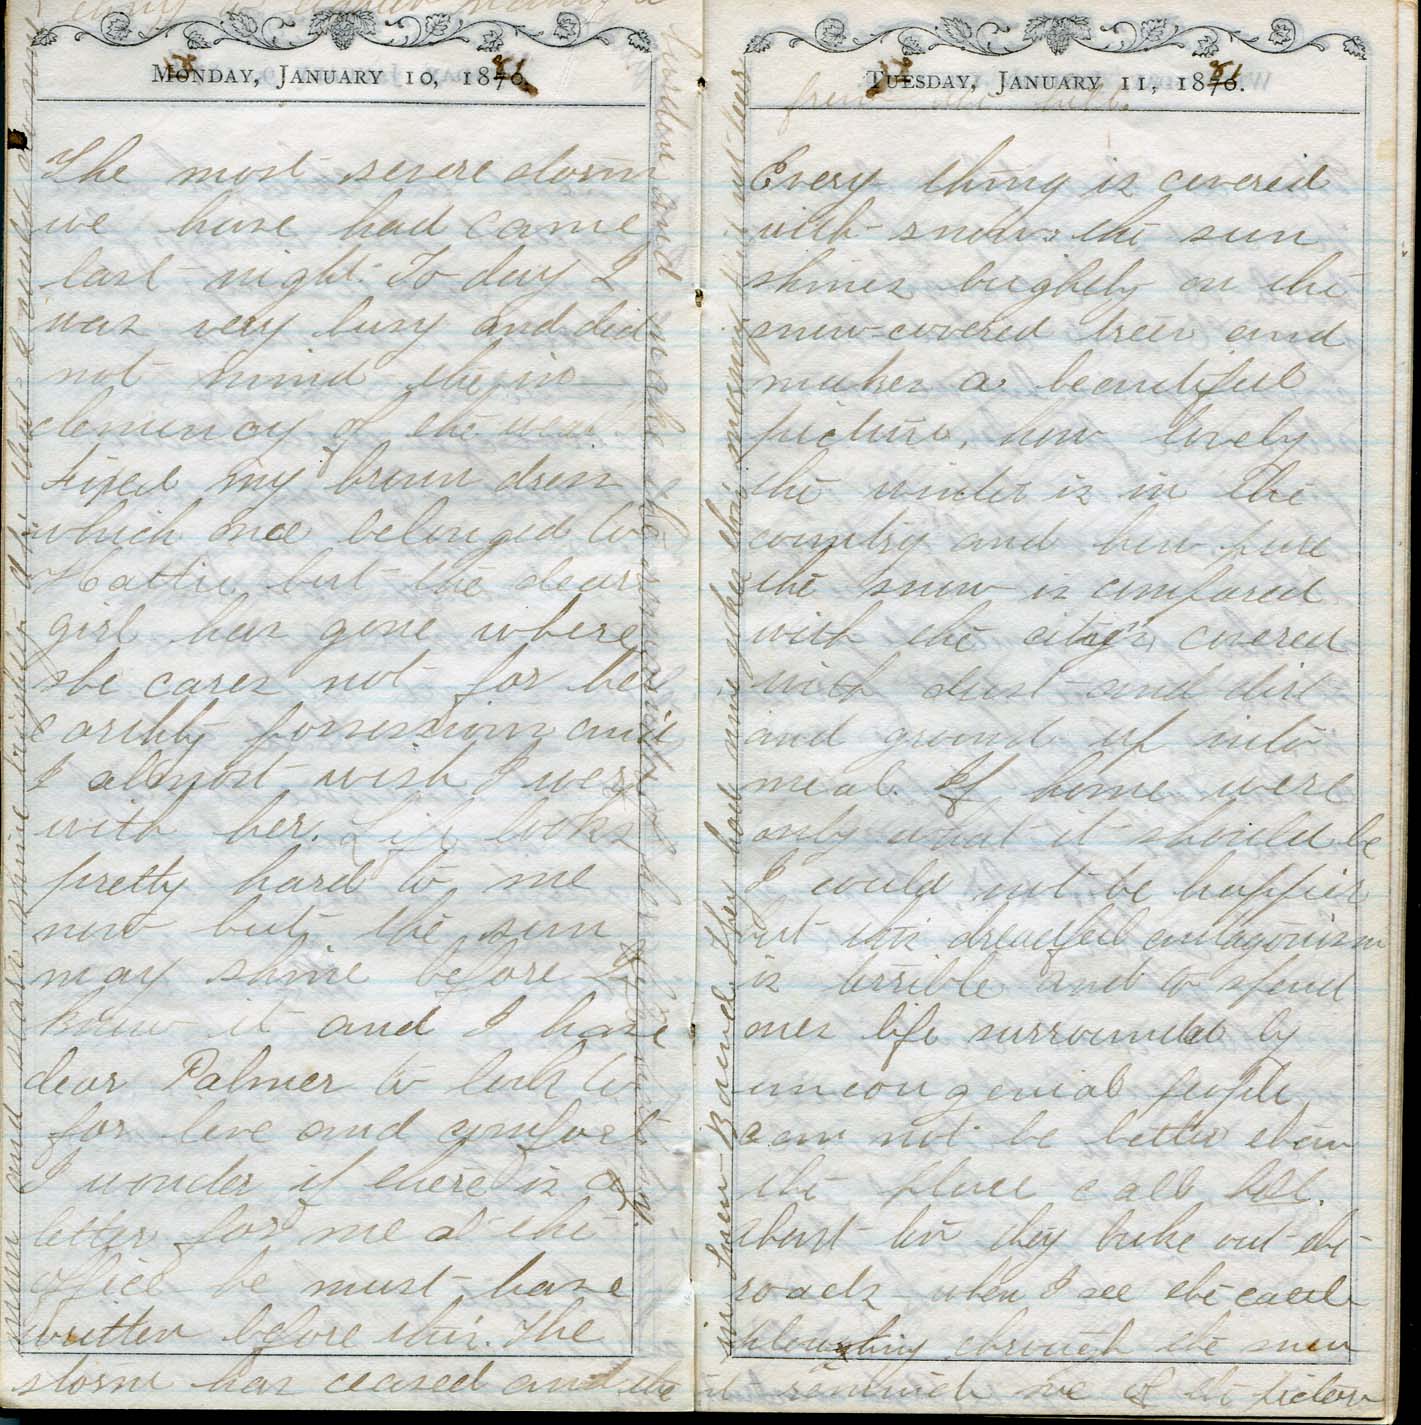 Monday, January 10, 1876.
81
The most severe storm
we have had came
last night. To day I
was very busy and did
not mind the in-
clemency of the weath
Fixed my brown dress
which once belonged to
Hattie but the dear
girl has gone where
she cares not for her
earthly possessions and
I almost wish I were
with her. Life looks
pretty hard to me
now but the sun
may shine before I
know it and I have
dear Palmer to look to
for love and comfort
I wonder if there is a
letter for me at the
office he must have
written before this. The
storm has ceased and the
moon and stars shine brightly
that I could
and
Tuesday, January 11, 1876.
81
from the hill.
Every thing is covered
with snow: the sun
shines brightly on the
snow-covered trees and
makes a beautiful
picture, how lovely
the winter is in the
country and how pure
the snow is compared
with the citys, covered
with dust and dirt
and ground up into
meal. If home were
only what it should be
I could not be happier
but this dreadful antagonism
is terrible and to spend
ones life surrounded by
uncongenial people
can not be better than
the place call hell.
About ten they broke out the
roads when I see the cattle
ploughing through the snow
it reminds me of the picture
in Rosa Bonheur
this morning